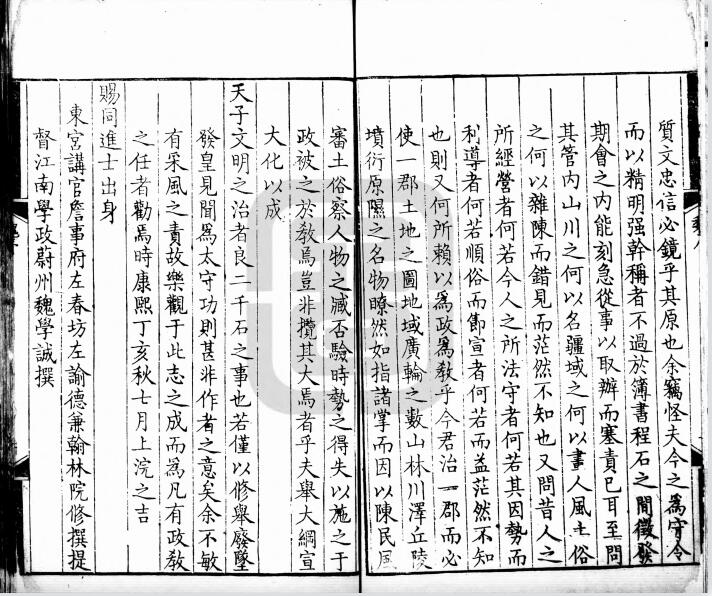 質文忠信必鏡乎其原也余竊怪夫今之為守令
而以精明强幹稱者不過於簿書程石之間徵發
期會之內能刻急從事以取辦而塞責已耳至問
其管內山川之何以名疆域之何以畫人風土俗
之何以雜陳而錯見而茫然不知也又問昔人之
所經營者何若今人之所法守者何若其因勢而
利導者何若順俗而節宣者何若而益茫然不知
也則又何所賴以為政為教乎今君治一郡而必
使一郡土地之圖地域廣輪之數山林川澤丘陵
墳衍原隰之名物瞭然如指諸掌而因以陳民風
審土俗察人物之臧否驗時勢之得失以施之于
政被之於教焉豈非攬其大焉者乎夫舉大綱宣
大化以成
天子文明之治者良二千石之事也若僅以修舉廢墜
發皇見聞為太守功則甚非作者之意矣余不敏
有采風之責故樂觀于此志之成而為凡有政教
之任者勸焉時康熙丁亥秋七月上浣之吉
賜同進士出身
東宮講官詹事府左春坊左諭德兼翰林院修撰提
督江南學政蔚州魏學誠撰